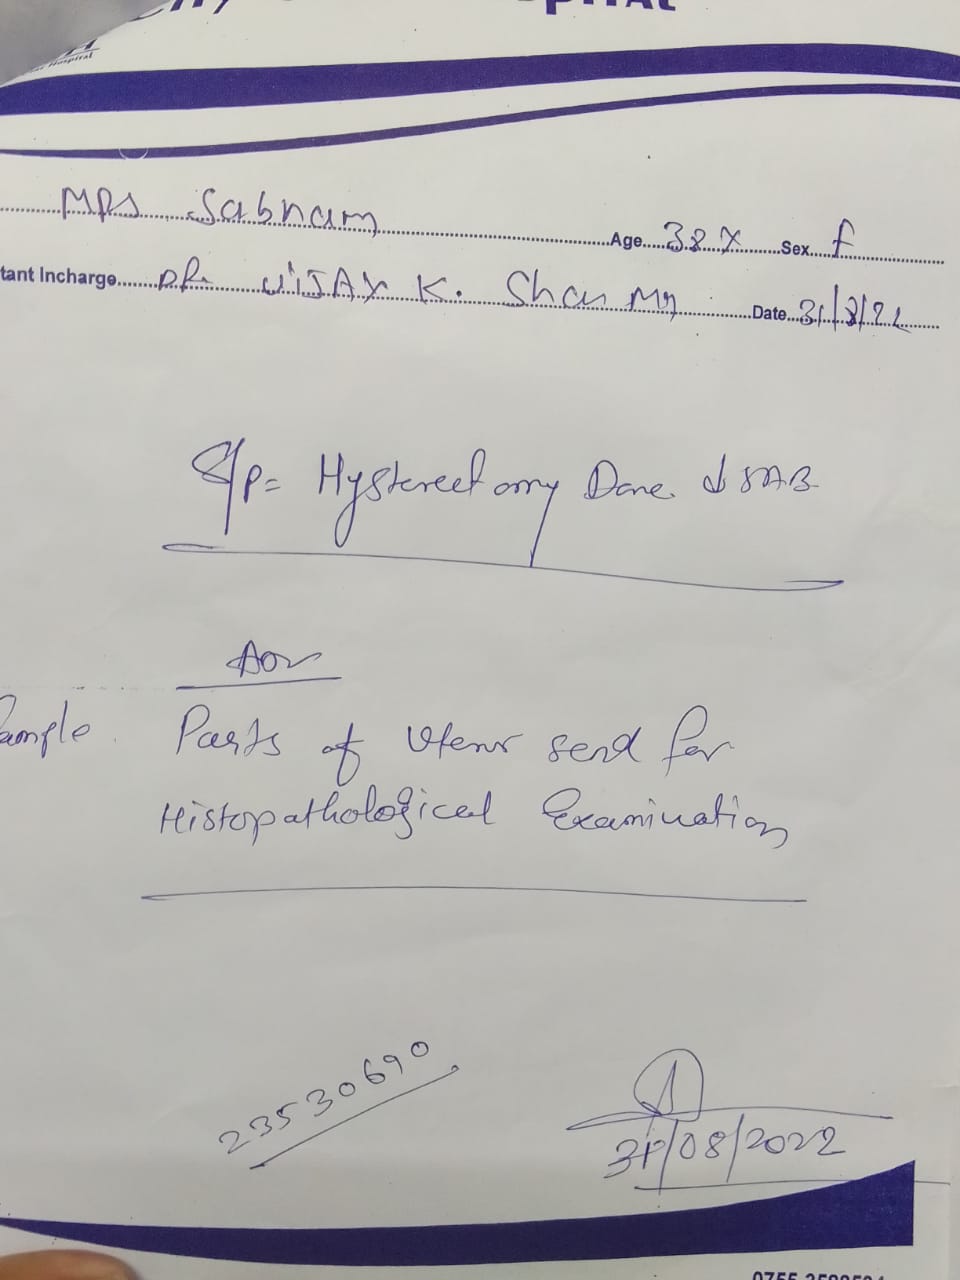 Hospital
Mrs Sabnam Age 38 Y Sex F
tant Incharge DR. VIJAY K. Sharma Date 31/8/22
S/p = Hysterectomy Done ↓ SAB
Adv
Sample Parts of Uterus send for
Histopathological Examination
23530690
31/08/2022